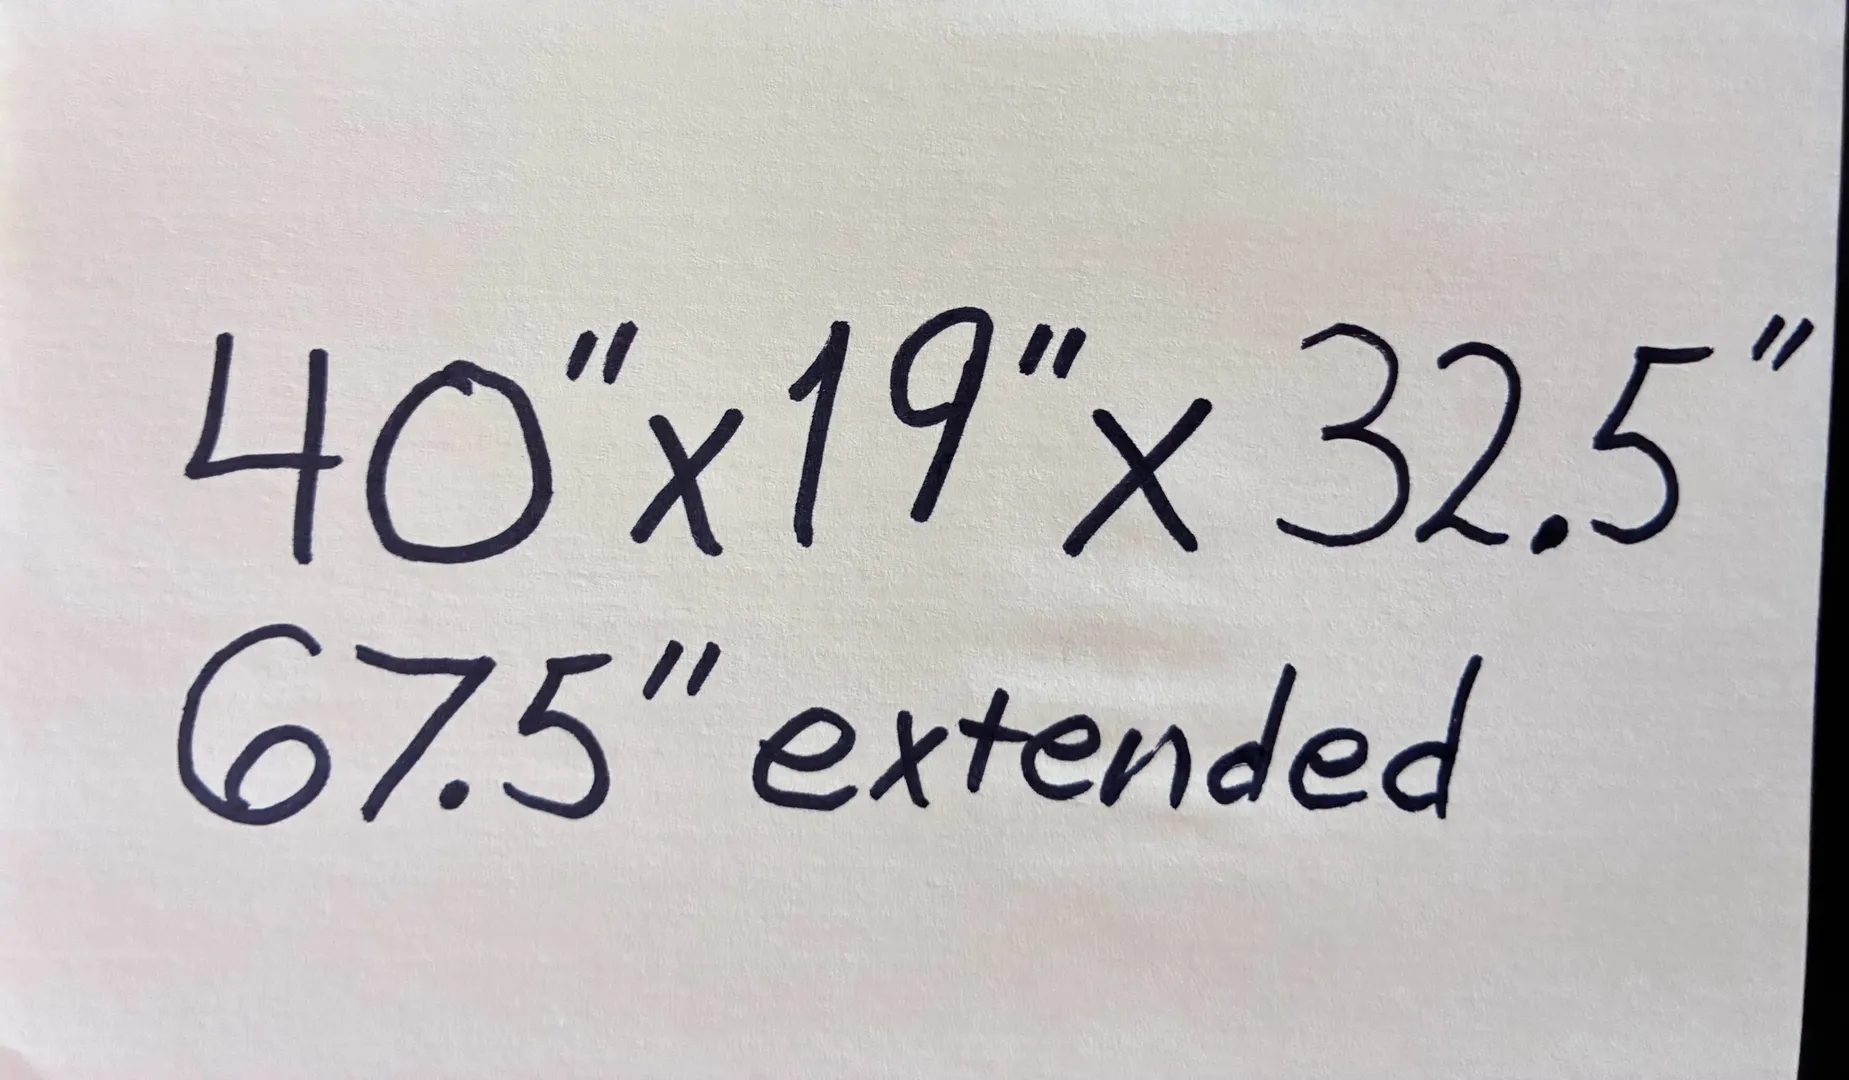 40"x19"x 32.5"
67.5" extended